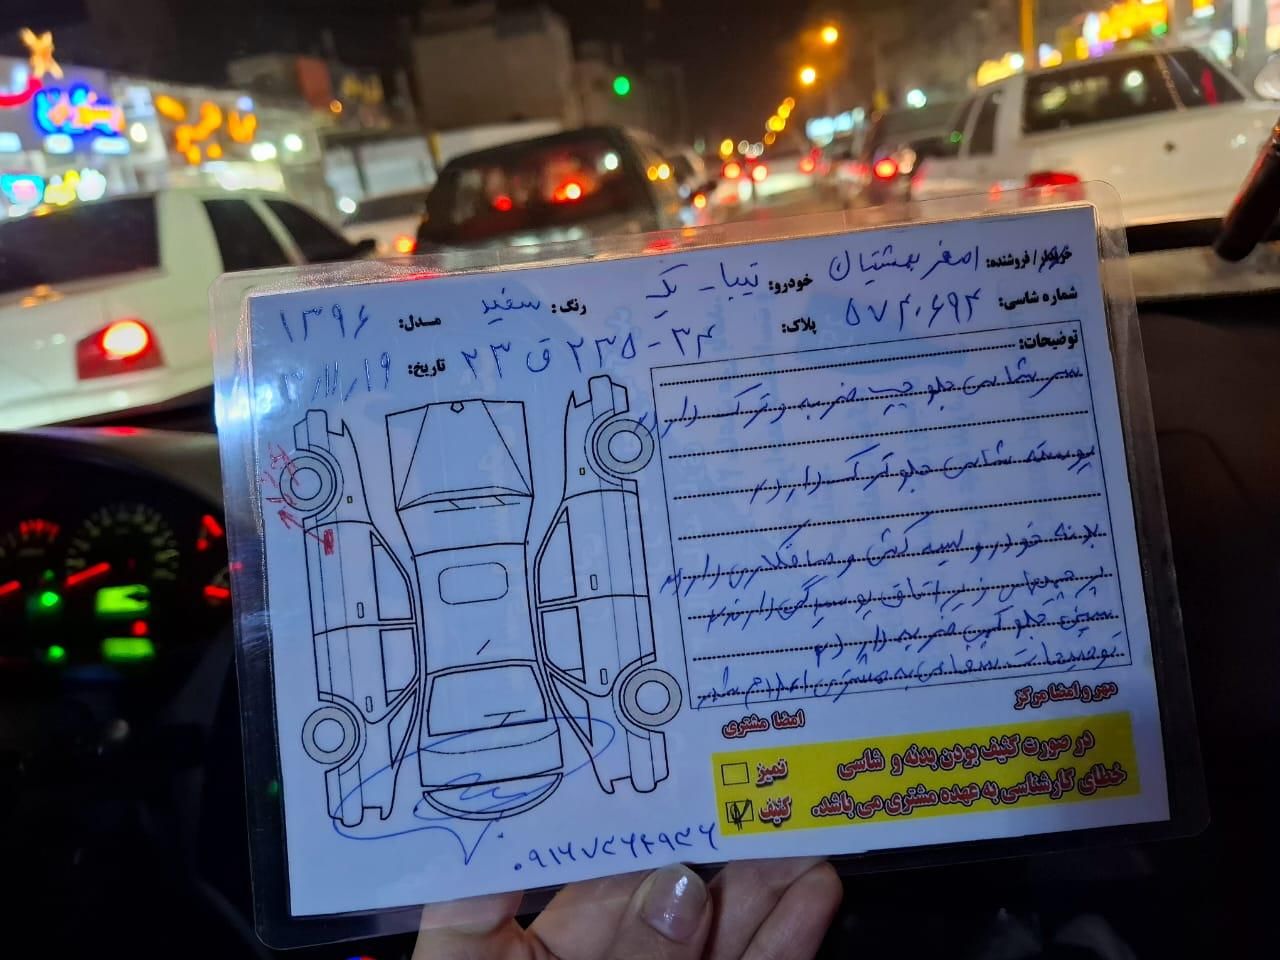 خریدار / فروشنده: اصغر بهشتیان خودرو: تیبا - یک رنگ: سفید مدل: ۱۳۹۶
شماره شاسی: ۵۷۴۰۶۹۴ پلاک: ۳۴ - ۲۳۵ ق ۲۳ تاریخ: ۳/۱۱/۱۹
توضیحات:
سر شاسی جلو چپ ضربه و ترک دارد
پوسته شاسی جلو ترک دارد
بدنه خودرو لیسه گیری و صافکاری دارد
زیر اتاق پوسیدگی دارند
سینی جلو کمی ضربه دارد
توضیحات شفاهی به مشتری اعلام شد
مهر و امضا مرکز
امضا مشتری
در صورت کثیف بودن بدنه و شاسی
خطای کارشناسی به عهده مشتری می باشد.
تمیز
کثیف